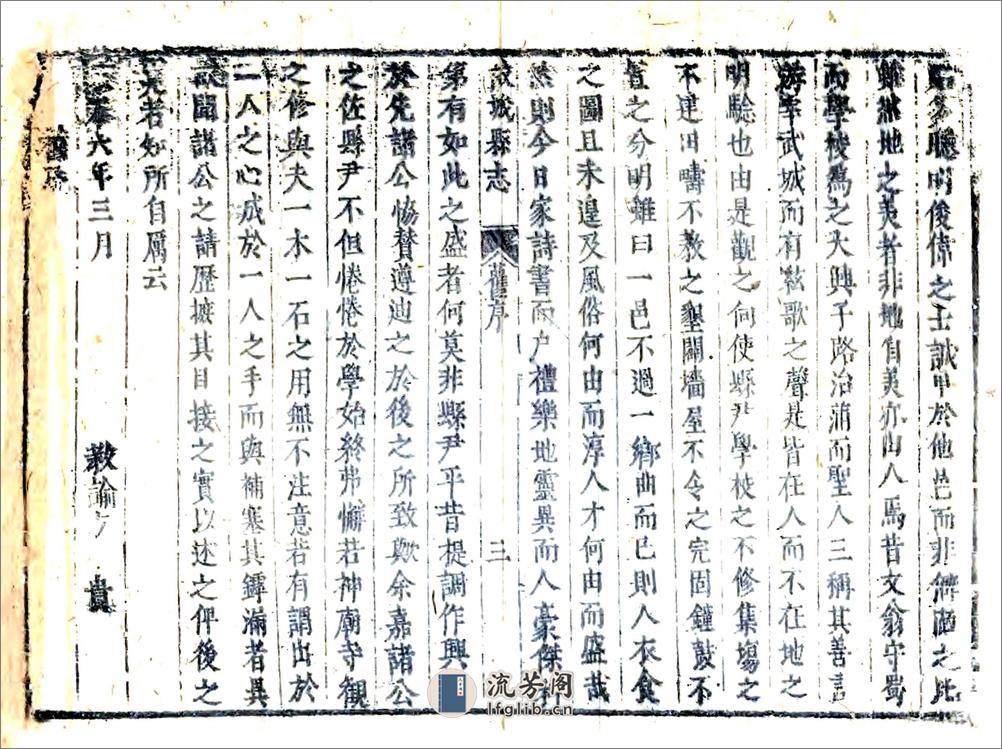 多聰明俊偉之士誠甲於他邑而非解陋之比
雖然地之美者非地自美亦由人焉昔文翁守蜀
而學校爲之大興子路治蒲而聖人三稱其善言
游宰武城而有絃歌之聲是皆在人而不在地之
明驗也由是觀之向使縣尹學校之不修集場之
不建田疇不教之墾闢墻屋不令之完固鐘鼓不
之分明雖曰一邑不過一鄉曲而已則人衣食
之圖且未遑及風俗何由而淳人才何由而盛哉
然則今日家詩書而户禮樂地靈異而人豪傑科
故城縣志 舊序 三
第有如此之盛者何莫非縣尹平昔提調作興
於先諸公恊賛遵迪之於後之所致歟余嘉諸公
之佐縣尹不但惓惓於學始終弗懈若神廟寺觀
之修與夫一木一石之用無不注意若有謂出於
二人之心成於一人之手而與補塞其罅漏者異
故因諸公之請歷摭其目接之實以述之俾後之
者知所自厲云
六年三月 教諭方 貴
流芳阁
lfglib.cn